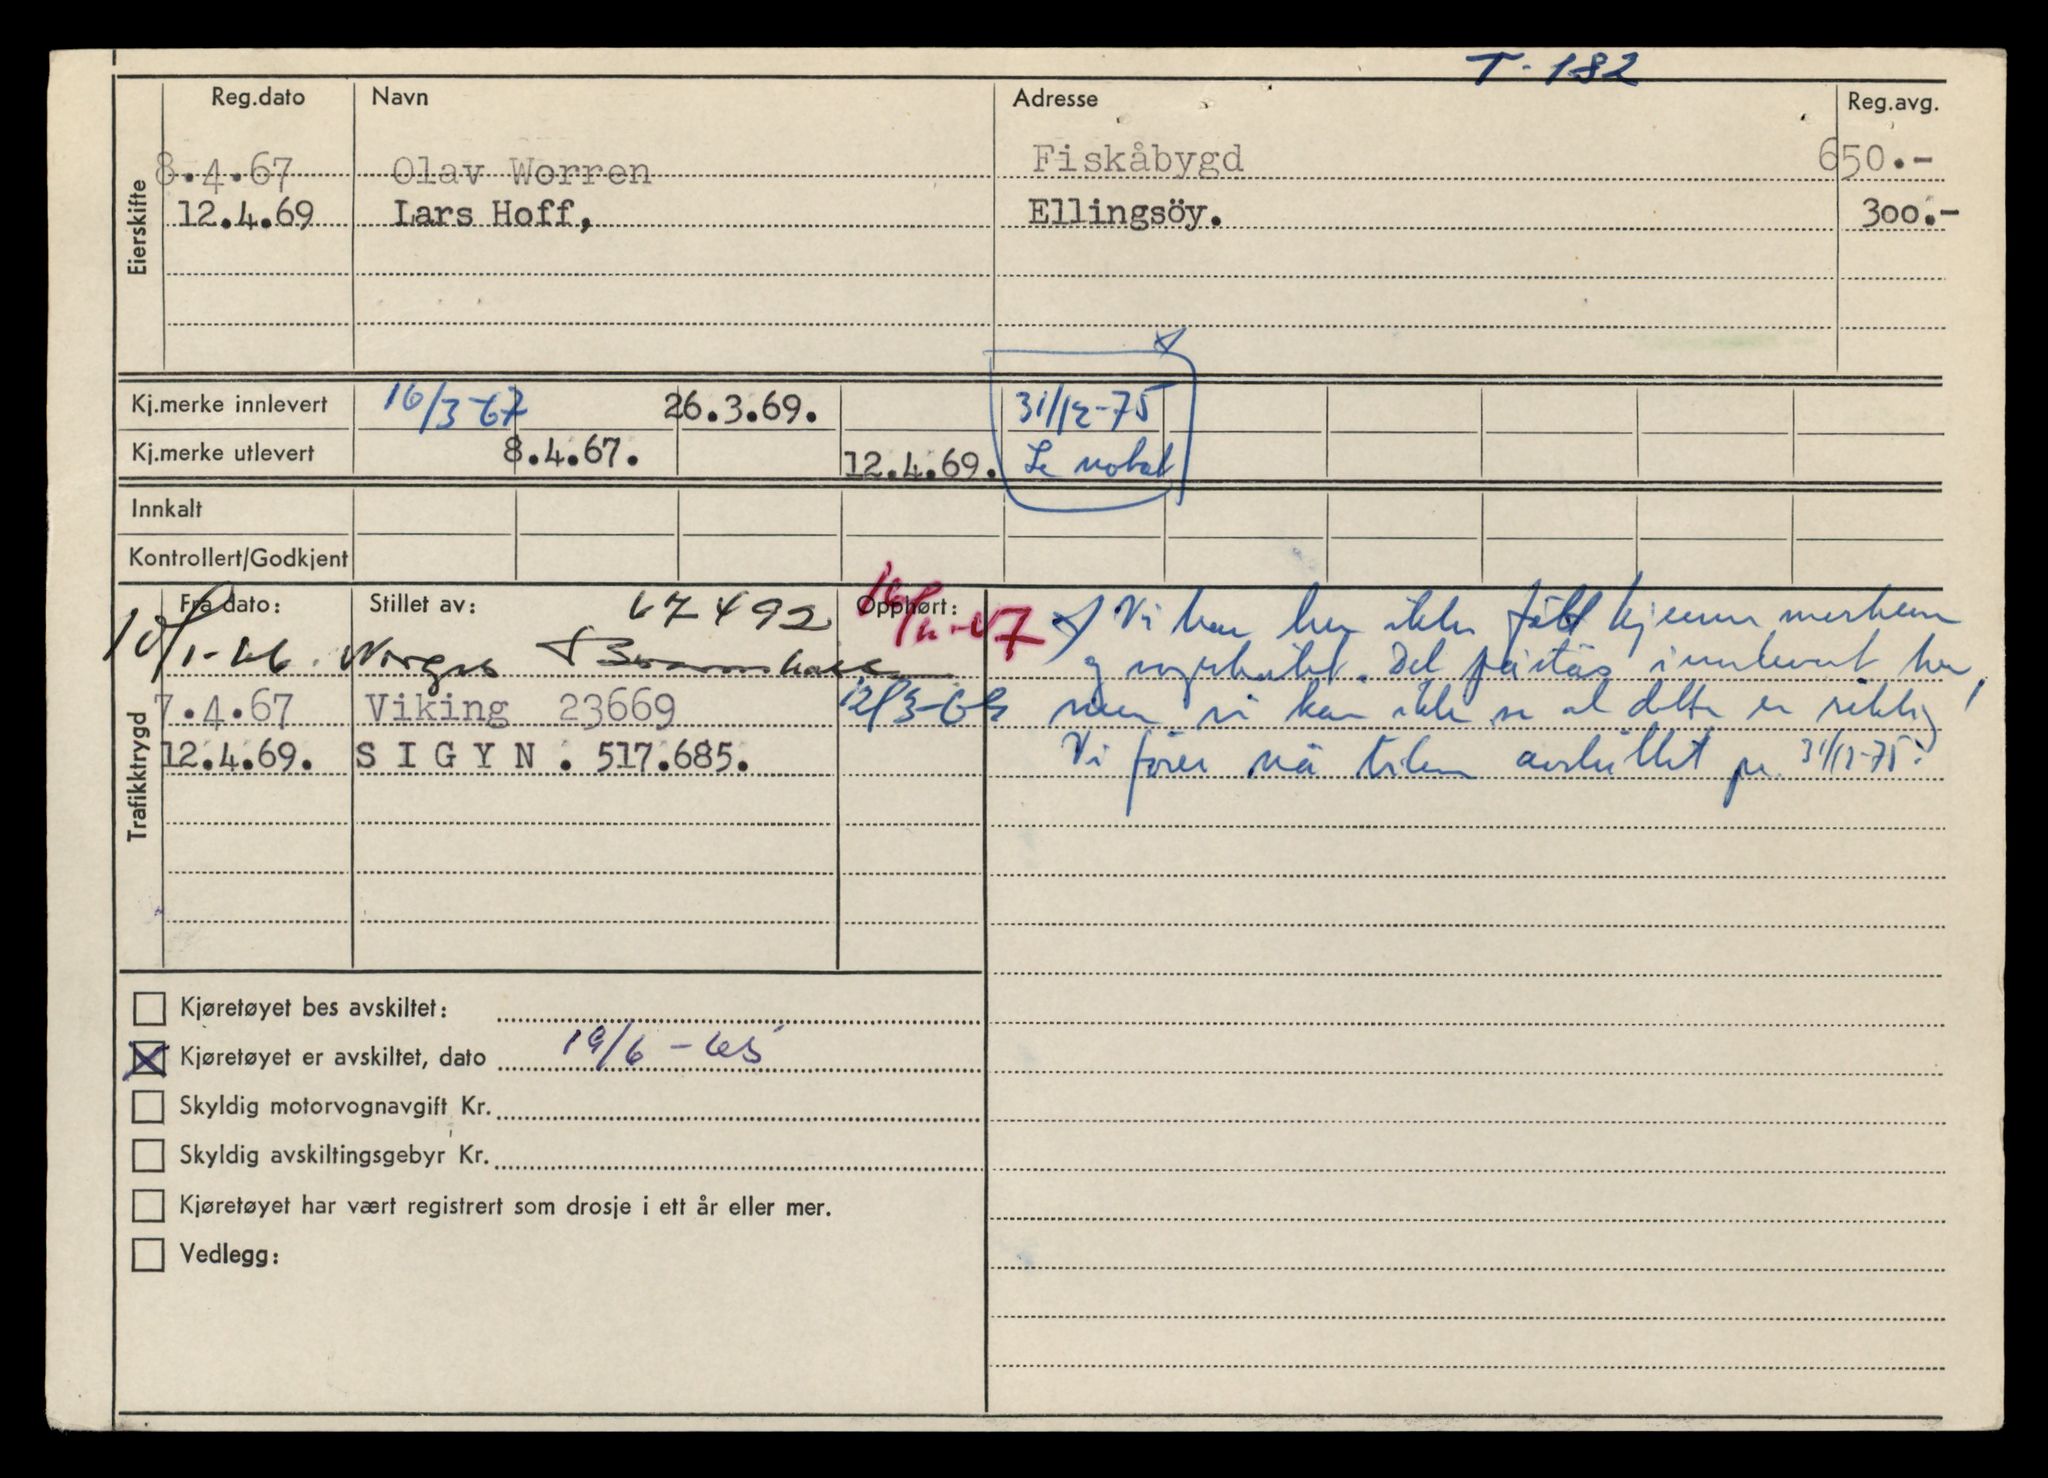 T-182
Reg.dato Navn Adresse Reg.avg.
Eierskifte
8.4.67 Olav Worren Fiskåbygd 650.-
12.4.69 Lars Hoff, Ellingsöy. 300.-
Kj.merke innlevert 16/3-67 26.3.69. 31/12-75
Kj.merke utlevert 8.4.67. 12.4.69. Se notat
Innkalt
Kontrollert/Godkjent
Trafiktrygd
Fra dato: Stillet av: 67492 Opphørt:
1-66 Norges Brannkasse
7.4.67 Viking 23669
12.4.69. SIGYN. 517.685.
Vi har her ikke fått kjennemerkene
og vognkortet. Det påstås innlevert her,
men vi kan ikke se at dette er riktig
Vi fører nå bilen avskiltet pr. 31/12-75.
Kjøretøyet bes avskiltet:
X Kjøretøyet er avskiltet, dato 19/6-65
Skyldig motorvognavgift Kr.
Skyldig avskiltingsgebyr Kr.
Kjøretøyet har vært registrert som drosje i ett år eller mer.
Vedlegg: